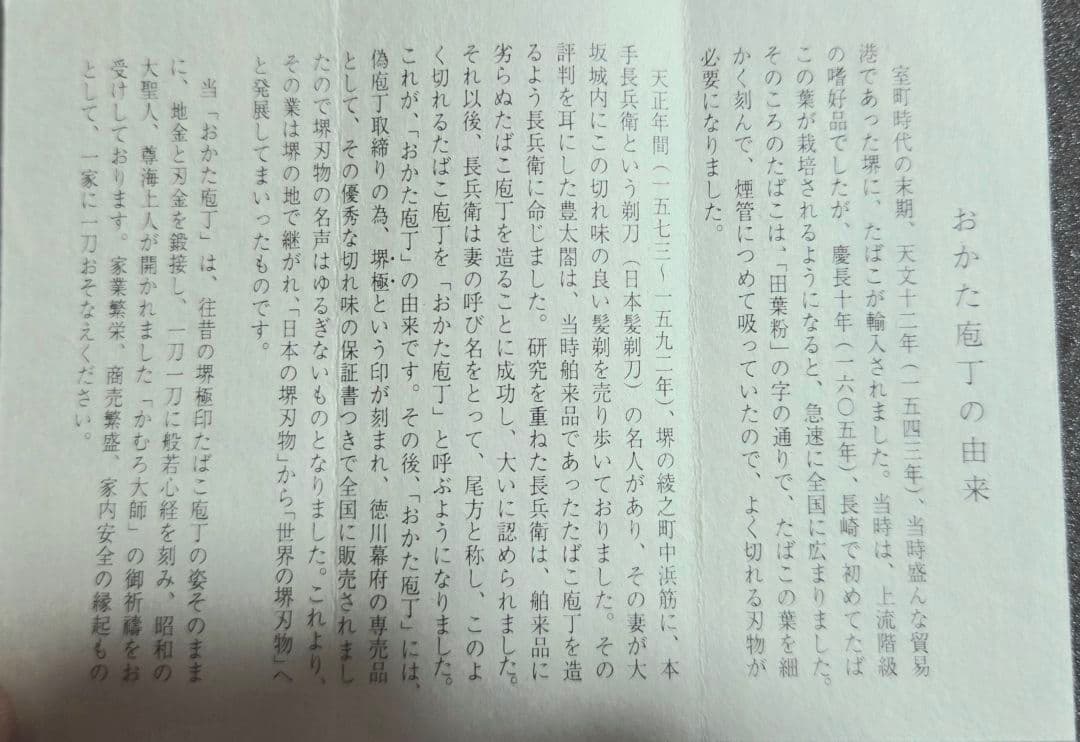 おかた庖丁の由来
室町時代の末期、天文十二年(一五四三年)、当時盛んな貿易
港であった堺に、たばこが輸入されました。当時は、上流階級
の嗜好品でしたが、慶長十年(一六〇五年)、長崎で初めてたば
この葉が栽培されるようになると、急速に全国に広まりました。
そのころのたばこは、「田葉粉」の字の通りで、たばこの葉を細
かく刻んで、煙管につめて吸っていたので、よく切れる刃物が
必要になりました。
天正年間(一五七三〜一五九一年)、堺の綾之町中浜筋に、本
手長兵衛という剃刀(日本髪剃刀)の名人があり、その妻が大
坂城内にこの切れ味の良い髪剃を売り歩いておりました。その
評判を耳にした豊太閤は、当時舶来品であったたばこ庖丁を造
るよう長兵衛に命じました。研究を重ねた長兵衛は、舶来品に
劣らぬたばこ庖丁を造ることに成功し、大いに認められました。
それ以後、長兵衛は妻の呼び名をとって、尾方と称し、このよ
く切れるたばこ庖丁を「おかた庖丁」と呼ぶようになりました。
これが、「おかた庖丁」の由来です。その後、「おかた庖丁」には、
偽庖丁取締りの為、堺極という印が刻まれ、徳川幕府の専売品
として、その優秀な切れ味の保証書つきで全国に販売されまし
たので堺刃物の名声はゆるぎないものとなりました。これより、
その業は堺の地で継がれ、「日本の堺刃物」から「世界の堺刃物」へ
と発展してまいったものです。
当「おかた庖丁」は、往昔の堺極印たばこ庖丁の姿そのまま
に、地金と刃金を鍛接し、一刀一刀に般若心経を刻み、昭和の
大聖人、尊海上人が開かれました「かむろ大師」の御祈禱をお
受けしております。家業繁栄、商売繁盛、家内安全の縁起もの
として、一家に一刀おそなえください。